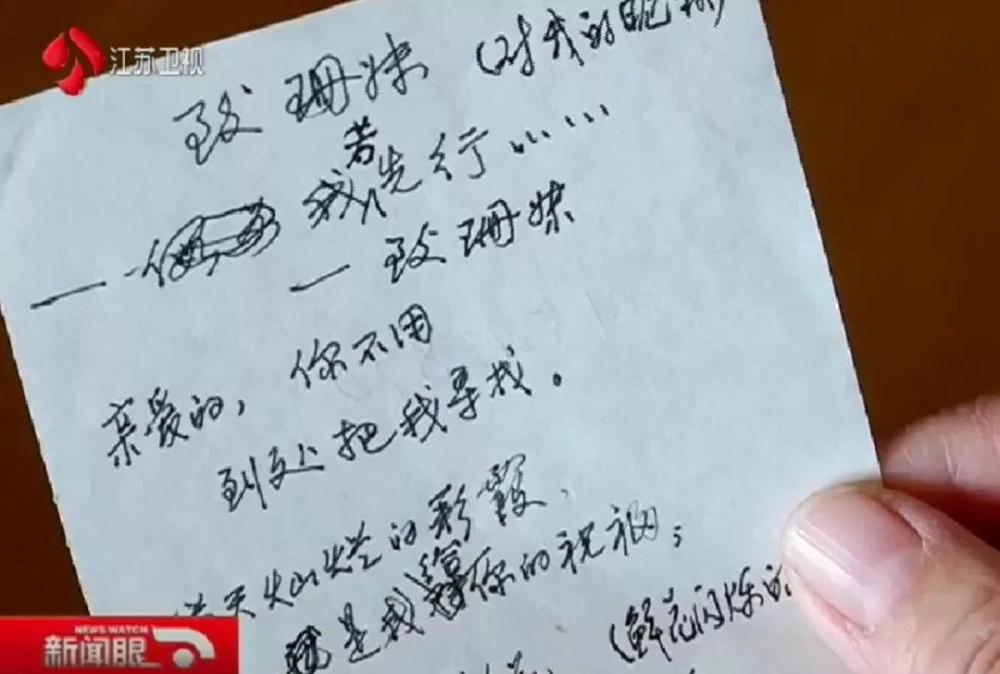 江苏卫视
致珊妹 (对我的昵称)
若
我先行……
— 致珊妹
亲爱的, 你不用
到处把我寻找。
满天灿烂的彩霞,
是我给你的祝福;
(鲜花闪烁的
NEWS WATCH
新闻眼